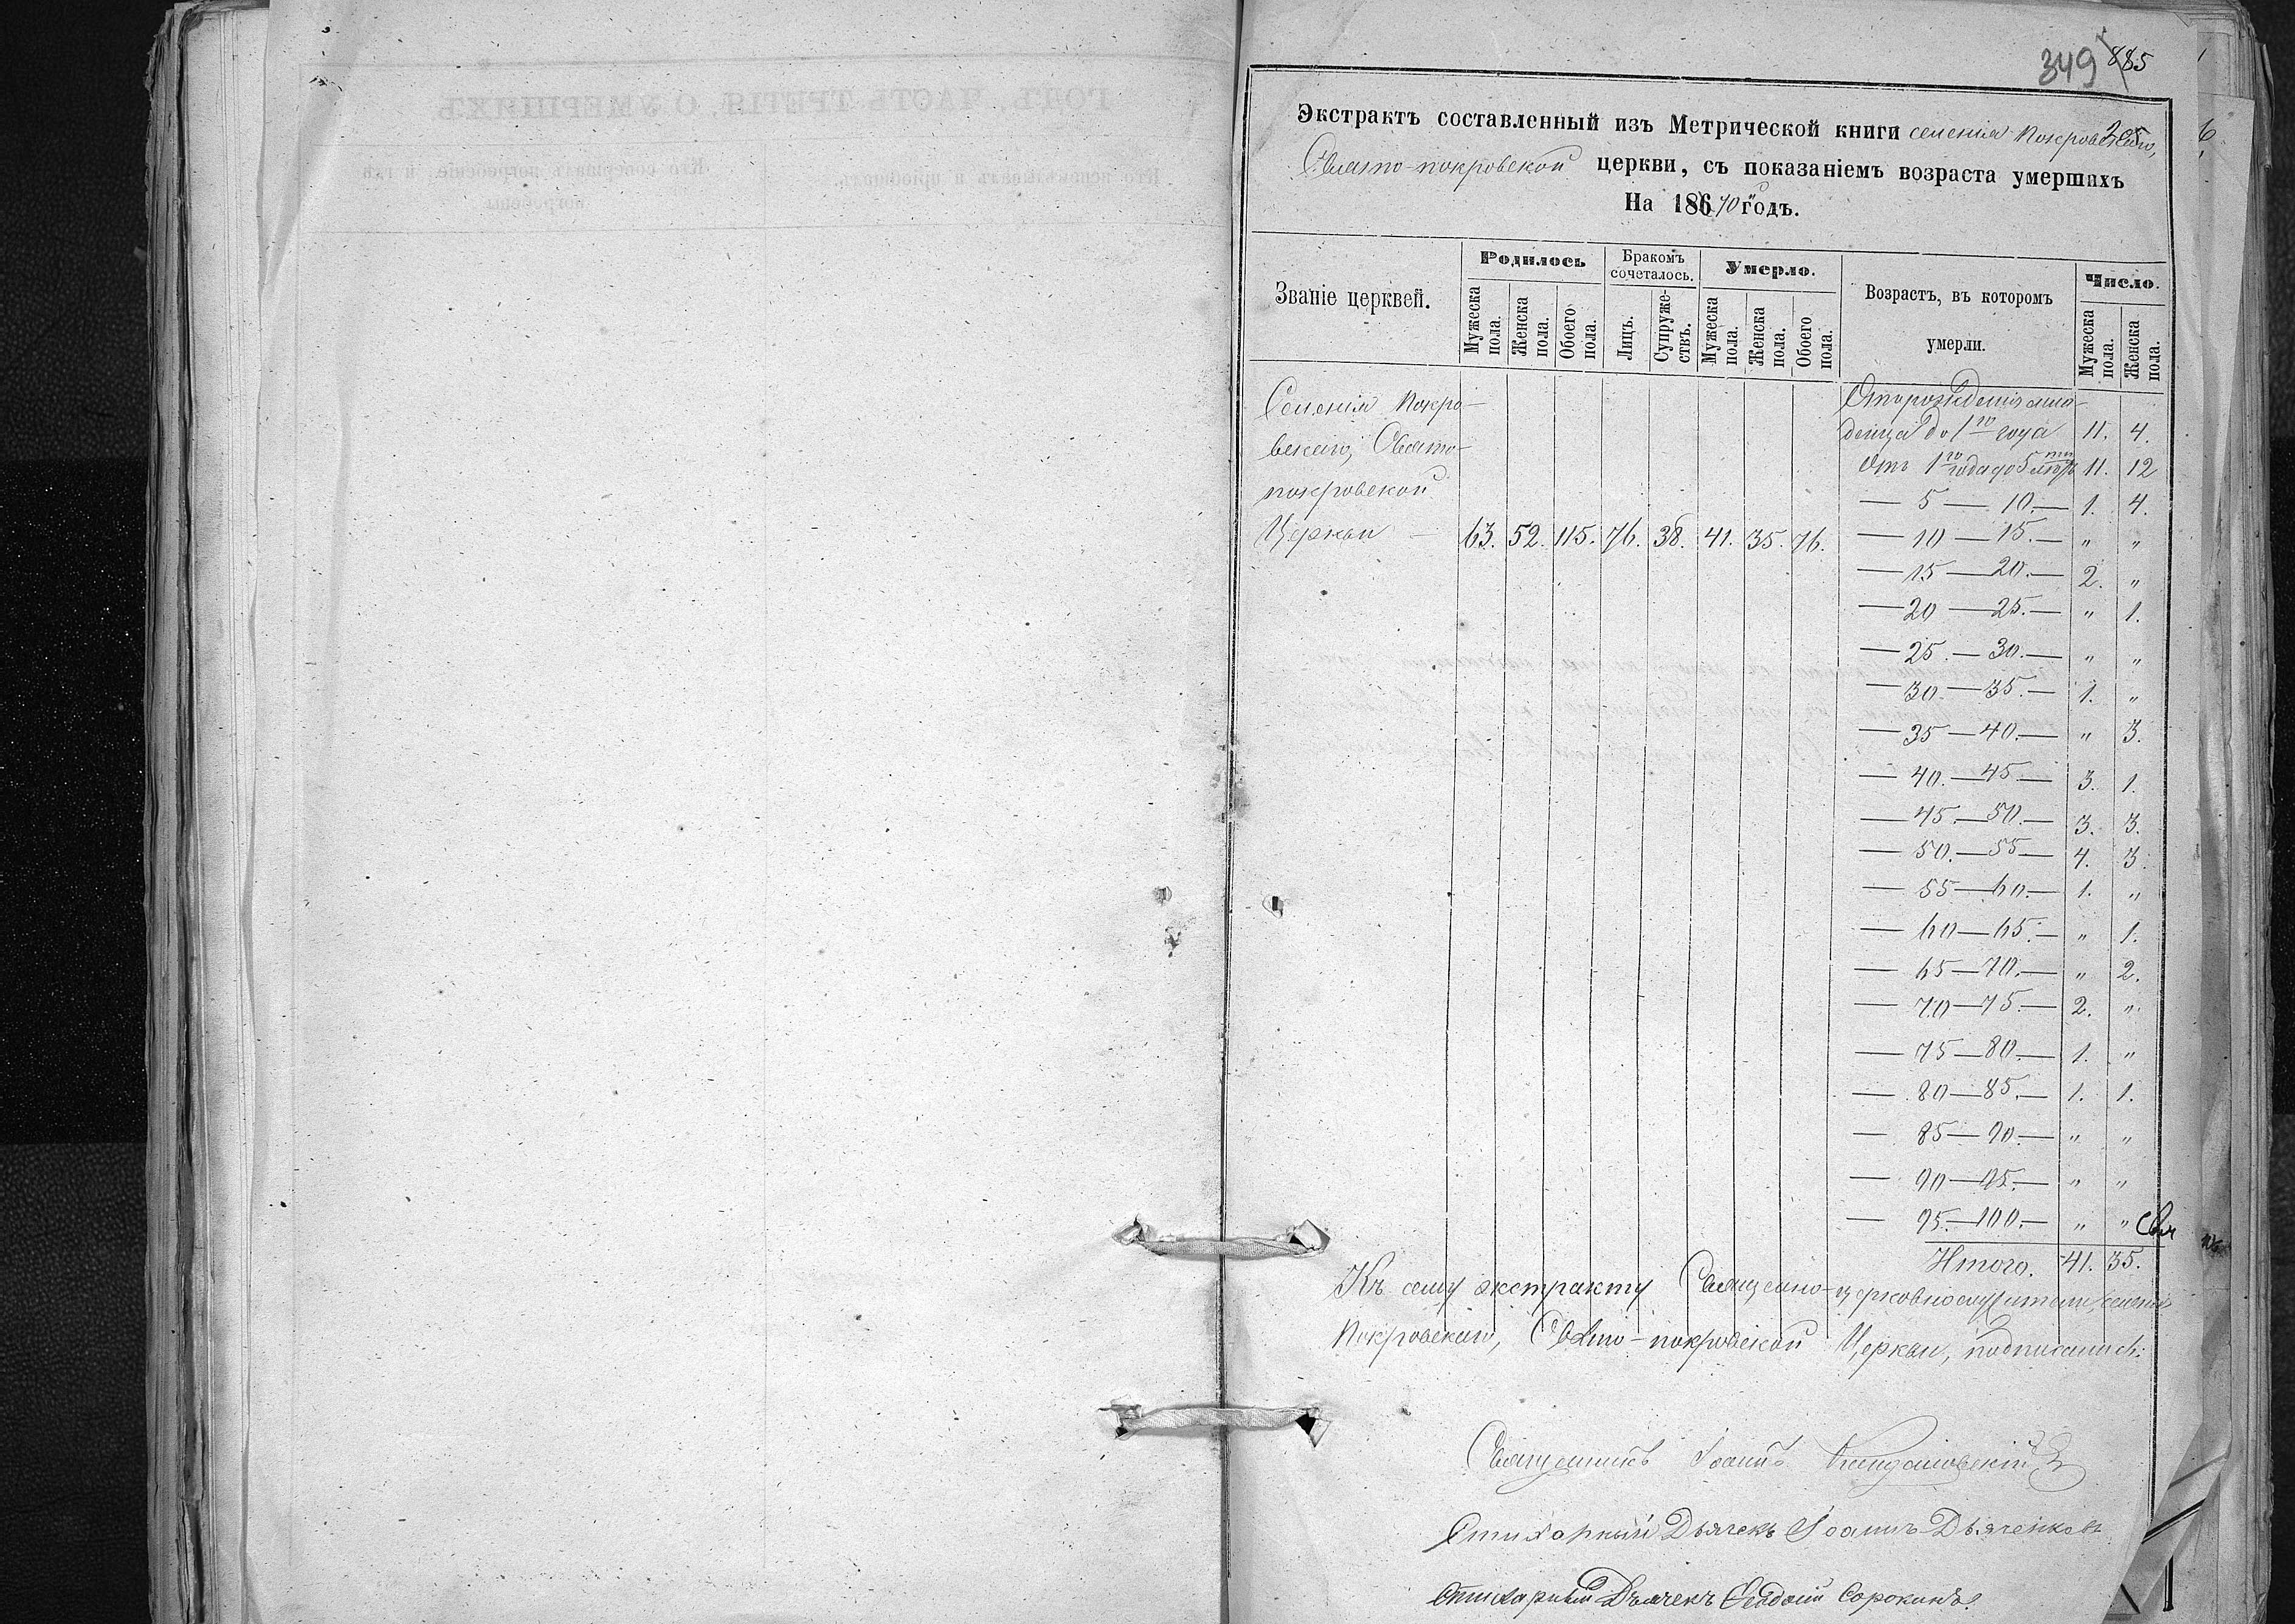 349 885
Экстрактъ составленный изъ Метрической книги селенія Покровскаго,
Свято-покровской церкви, съ показаніемъ возраста умершихъ
На 1870 годъ.
Званіе церквей.
Родилось
Бракомъ сочеталось.
Умерло.
Возрастъ, въ которомъ умерли.
Число.
Мужеска пола.
Женска пола.
Обоего пола.
Лицъ.
Супруже-ствъ.
Мужеска пола.
Женска пола.
Обоего пола.
Мужеска пола.
Женска пола.
Селенія Покро-
вскаго, Свято-
покровской
Церкви — 63. 52. 115. 76. 38. 41. 35. 76.
Отъ рожденія мла-
денца до 1го года 11. 4.
Отъ 1го года до 5ти лѣтъ 11. 12
— 5 — 10. — 1. 4.
— 10 — 15. — „ „
— 15 — 20. — 2. „
— 20 — 25. — „ 1.
— 25. — 30. — „ „
— 30. — 35. — 1. „
— 35 — 40. — „ 3.
— 40. — 45 — 3. 1.
— 45. — 50. — 3. 3.
— 50. — 55 — 4. 3.
— 55 — 60. — 1. „
— 60 — 65. — „ 1.
— 65 — 70. — „ 2.
— 70 — 75. — 2. „
— 75 — 80. — 1. „
— 80 — 85. — 1. 1.
— 85 — 90. — „ „
— 90 — 95. — „ „
— 95. — 100. — „ „
Итого. 41. 35.
Къ сему экстракту Священно-церковнослужители, селенія
Покровскаго, Свято-покровской Церкви, подписались:
Священникъ Іоаннъ
Стихарный Дьячекъ Іоаннъ Дьяченковъ
Стихарный Дьячекъ Сорокинъ.